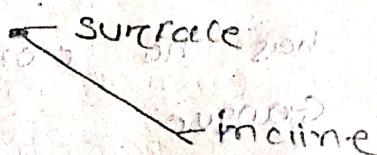 surface
incline